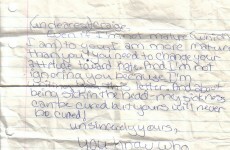 Even if I'm not mature (which
I am) to you, I am more mature
than you! You need to change your
attitude toward me. And I'm not
ignoring you because I'm
this letter. And about
being sick in the head- my sickness
can be cured but yours will never
be cured!
unsincerely yours,
you know who